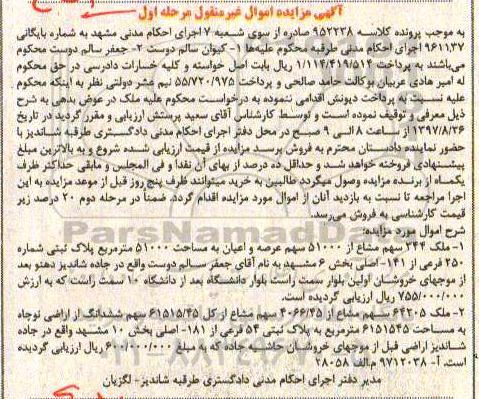 آگهی مزایده اموال غیرمنقول مرحله اول
به موجب پرونده کلاسه ۹۵۲۲۳۸ صادره از سوی شعبه ۷ اجرای احکام مدنی مشهد به شماره بایگانی
۹۶۱۱۳۷ اجرای احکام مدنی طرقبه محکوم علیه‌ها ۱- کیوان سالم دوست ۲- جعفر سالم دوست محکوم
می‌باشند به پرداخت ۱/۱۱۴/۴۱۹/۵۱۴ ریال بابت اصل خواسته و کلیه خسارات دادرسی در حق محکوم
له امیر هادی عربیان بوکالت حامد صالحی و پرداخت ۵۵/۷۲۰/۹۷۵ نیم عشر دولتی نظر به اینکه محکوم
علیه نسبت به پرداخت دیونش اقدامی ننموده به درخواست محکوم علیه ملک در عوض بدهی به شرح
ذیل معرفی و توقیف نموده است و توسط کارشناس آقای سعید پرستش ارزیابی و مقرر گردید در تاریخ
۱۳۹۷/۸/۲۶ از ساعت ۸ الی ۹ صبح در محل دفتر اجرای احکام مدنی دادگستری طرقبه شاندیز با
حضور نماینده دادستان محترم به فروش برسد مزایده از قیمت ارزیابی شده شروع و به بالاترین مبلغ
پیشنهادی فروخته خواهد شد و حداقل ده درصد از بهای آن نقدا و فی المجلس و مابقی حداکثر ظرف
یکماه از برنده مزایده وصول میگردد طالبین به خرید میتوانند ظرف پنج روز قبل از موعد مزایده به این
اجرا مراجعه تا نسبت به بازدید آنان از اموال مورد مزایده اقدام گردد. ضمناً در مرحله دوم ۲۰ درصد زیر
قیمت کارشناسی به فروش می‌رسد.
شرح اموال مورد مزایده:
۱- ملک ۲۴۴ سهم مشاع از ۵۱۰۰۰ سهم عرصه و اعیان به مساحت ۵۱۰۰۰ مترمربع پلاک ثبتی شماره
۲۵۰ فرعی از ۱۴۱- اصلی بخش ۶ مشهد به نام آقای جعفر سالم دوست واقع در جاده شاندیز دهنو بعد
از موجهای خروشان اولین بلوار سمت راست بلوار دانشگاه، بعد از دانشگاه ۱۰ سمت راست که به ارزش
۷۵۵/۰۰۰/۰۰۰ ریال ارزیابی گردیده است.
۲- ملک ۶۴۲۰۵ سهم مشاع از ۴۰۶۶/۴۵ سهم مشاع از کل ۶۱۵۱۵/۴۵ سهم ششدانگ از اراضی نوجاه
به مساحت ۶۱۵۱۵۴۵ مترمربع به پلاک ثبتی ۵۴ فرعی از ۱۸۱- اصلی بخش ۱۰ مشهد واقع در جاده
شاندیز اراضی قبل از موجهای خروشان حاشیه جاده که به مبلغ ۶۱۰/۰۰۰/۰۰۰ ریال ارزیابی گردیده
است. آ- ۹۷۱۲۰۳۸ م.الف ۲۸۰۵۸
مدیر دفتر اجرای احکام مدنی دادگستری طرقبه شاندیز- لگزیان
ParsNamadData